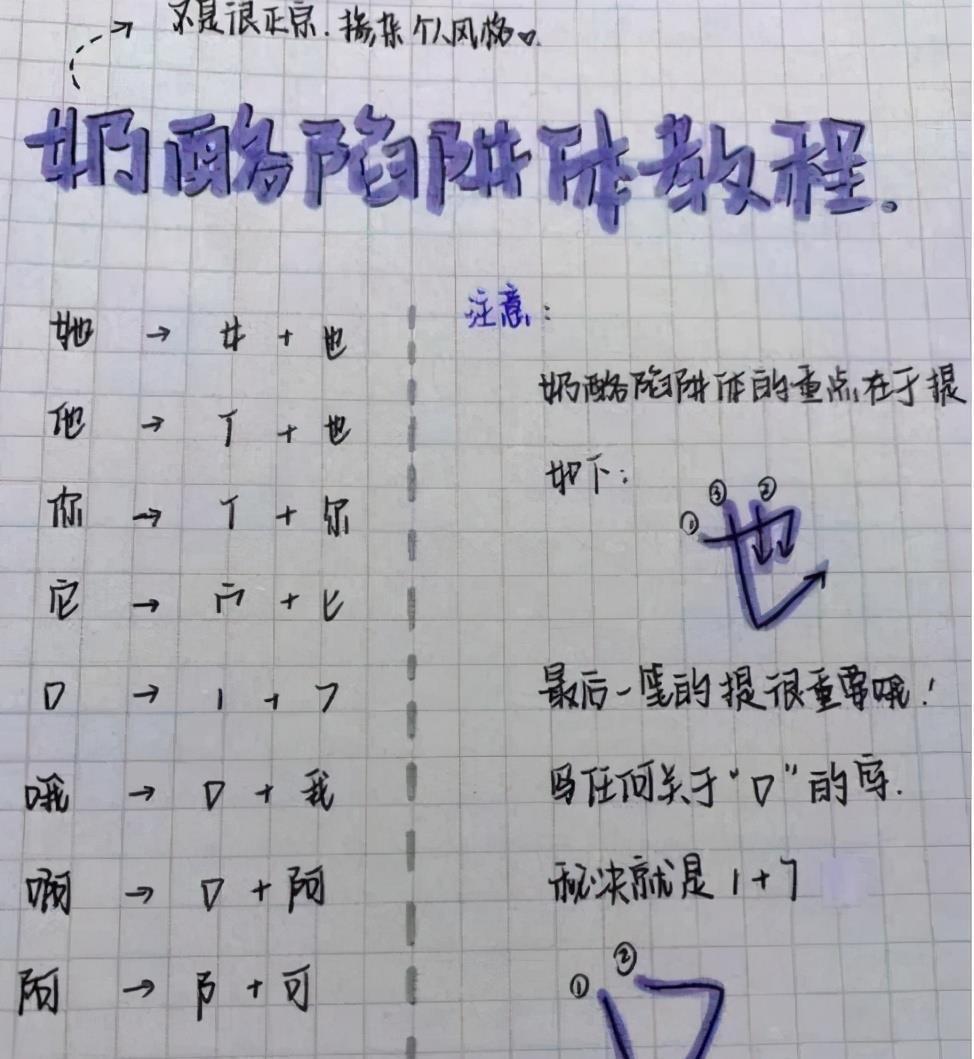 不是很正宗.掺杂个人风格。
奶酪陷阱体教程.
她 → 女 + 也
他 → 亻 + 也
你 → 亻 + 尔
它 → 宀 + 匕
口 → 丨 + ㄱ
哦 → 口 + 我
啊 → 口 + 阿
阿 → 阝 + 可
注意:
奶酪陷阱体的重点在于提
如下:
① ③ ②
也
最后一笔的提很重要哦!
写任何关于“口”的字.
秘诀就是 丨+ㄱ
① ②
口